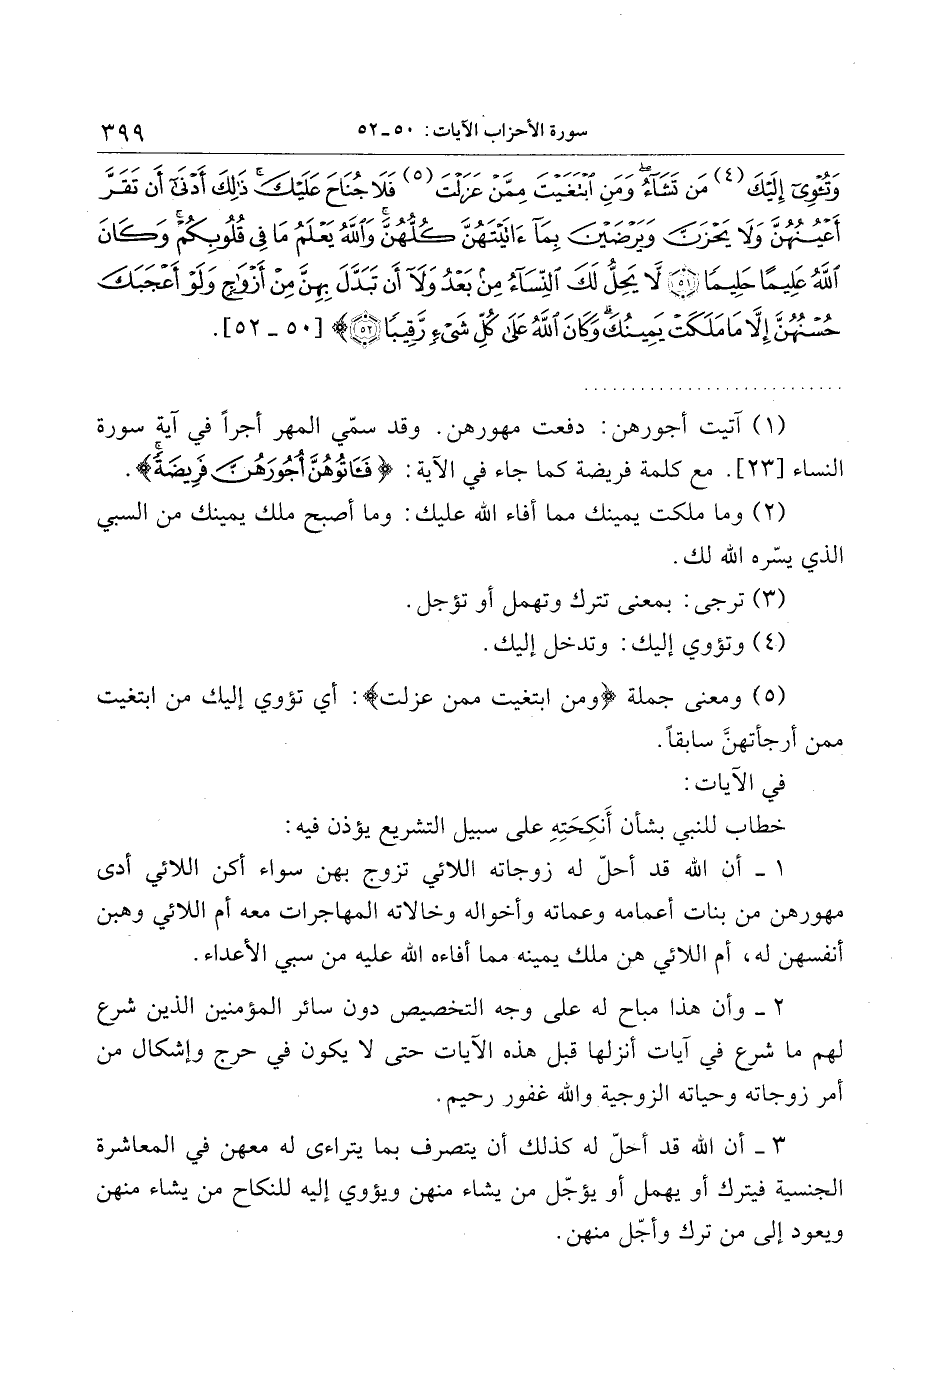 سورة الأحزاب الآيات: ٥٠ ـ ٥٢ ٣٩٩
وَتُـْٔوِىٓ إِلَيْكَ (٤) مَن تَشَآءُ ۖ وَمَنِ ٱبْتَغَيْتَ مِمَّنْ عَزَلْتَ (٥) فَلَا جُنَاحَ عَلَيْكَ ۚ ذَٰلِكَ أَدْنَىٰٓ أَن تَقَرَّ
أَعْيُنُهُنَّ وَلَا يَحْزَنَّ وَيَرْضَيْنَ بِمَآ ءَاتَيْتَهُنَّ كُلُّهُنَّ ۚ وَٱللَّهُ يَعْلَمُ مَا فِى قُلُوبِكُمْ ۚ وَكَانَ
ٱللَّهُ عَلِيمًا حَلِيمًا ۝٥١ لَّا يَحِلُّ لَكَ ٱلنِّسَآءُ مِنۢ بَعْدُ وَلَآ أَن تَبَدَّلَ بِهِنَّ مِنْ أَزْوَٰجٍ وَلَوْ أَعْجَبَكَ
حُسْنُهُنَّ إِلَّا مَا مَلَكَتْ يَمِينُكَ ۗ وَكَانَ ٱللَّهُ عَلَىٰ كُلِّ شَىْءٍ رَّقِيبًا ۝٥٢﴾ [٥٠ ـ ٥٢].
(١) آتيت أجورهن: دفعت مهورهن. وقد سمّي المهر أجراً في آية سورة
النساء [٢٣]. مع كلمة فريضة كما جاء في الآية: ﴿فَـَٔاتُوهُنَّ أُجُورَهُنَّ فَرِيضَةً ۚ﴾.
(٢) وما ملكت يمينك مما أفاء الله عليك: وما أصبح ملك يمينك من السبي
الذي يسّره الله لك.
(٣) ترجى: بمعنى تترك وتهمل أو تؤجل.
(٤) وتؤوي إليك: وتدخل إليك.
(٥) ومعنى جملة ﴿ومن ابتغيت ممن عزلت﴾: أي تؤوي إليك من ابتغيت
ممن أرجأتهنَّ سابقاً.
في الآيات:
خطاب للنبي بشأن أَنكِحَتِهِ على سبيل التشريع يؤذن فيه:
١ ـ أن الله قد أحلّ له زوجاته اللائي تزوج بهن سواء أكن اللائي أدى
مهورهن من بنات أعمامه وعماته وأخواله وخالاته المهاجرات معه أم اللائي وهبن
أنفسهن له، أم اللائي هن ملك يمينه مما أفاءه الله عليه من سبي الأعداء.
٢ ـ وأن هذا مباح له على وجه التخصيص دون سائر المؤمنين الذين شرع
لهم ما شرع في آيات أنزلها قبل هذه الآيات حتى لا يكون في حرج وإشكال من
أمر زوجاته وحياته الزوجية والله غفور رحيم.
٣ ـ أن الله قد أحلّ له كذلك أن يتصرف بما يتراءى له معهن في المعاشرة
الجنسية فيترك أو يهمل أو يؤجّل من يشاء منهن ويؤوي إليه للنكاح من يشاء منهن
ويعود إلى من ترك وأجّل منهن.